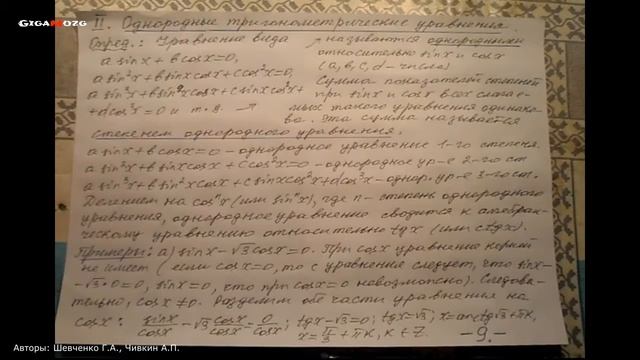 GIGAMOZG
II. Однородные тригонометрические уравнения.
Опред.: Уравнение вида называются однородными
a sinx + b cosx = 0, относительно sinx и cosx
a sin²x + b sinx cosx + c cos²x = 0, (a, b, c, d - числа)
a sin³x + b sin²x cosx + c sinx cos²x + Сумма показателей степеней
+ d cos³x = 0 и т.д. → при sinx и cosx всех слагае-
мых такого уравнения одинако-
ва. Эта сумма называется
степенем однородного уравнения.
a sinx + b cosx = 0 - однородное уравнение 1-го степеня.
a sin²x + b sinx cosx + c cos²x = 0 - однородное ур-е 2-го ст.
a sin³x + b sin²x cosx + c sinx cos²x + d cos³x - однор. ур-е 3-го ст.
Делением на cosⁿx (или sinⁿx), где n - степень однородного
уравнения, однородное уравнение сводится к алгебраи-
ческому уравнению относительно tgx (или ctgx).
Примеры: а) sinx - √3 cosx = 0. При cosx уравнение корней
не имеет (если cosx = 0, то с уравнения следует, что sinx -
- √3 · 0 = 0, sinx = 0, что при cosx = 0 невозможно). Следова-
тельно, cosx ≠ 0. Разделим обе части уравнения на
cosx: sinx/cosx - √3 cosx/cosx = 0/cosx; tgx - √3 = 0; tgx = √3; x = arctg√3 + πk,
x = π/3 + πk, k ∈ Z. - 9. -
Авторы: Шевченко Г.А., Чивкин А.П.